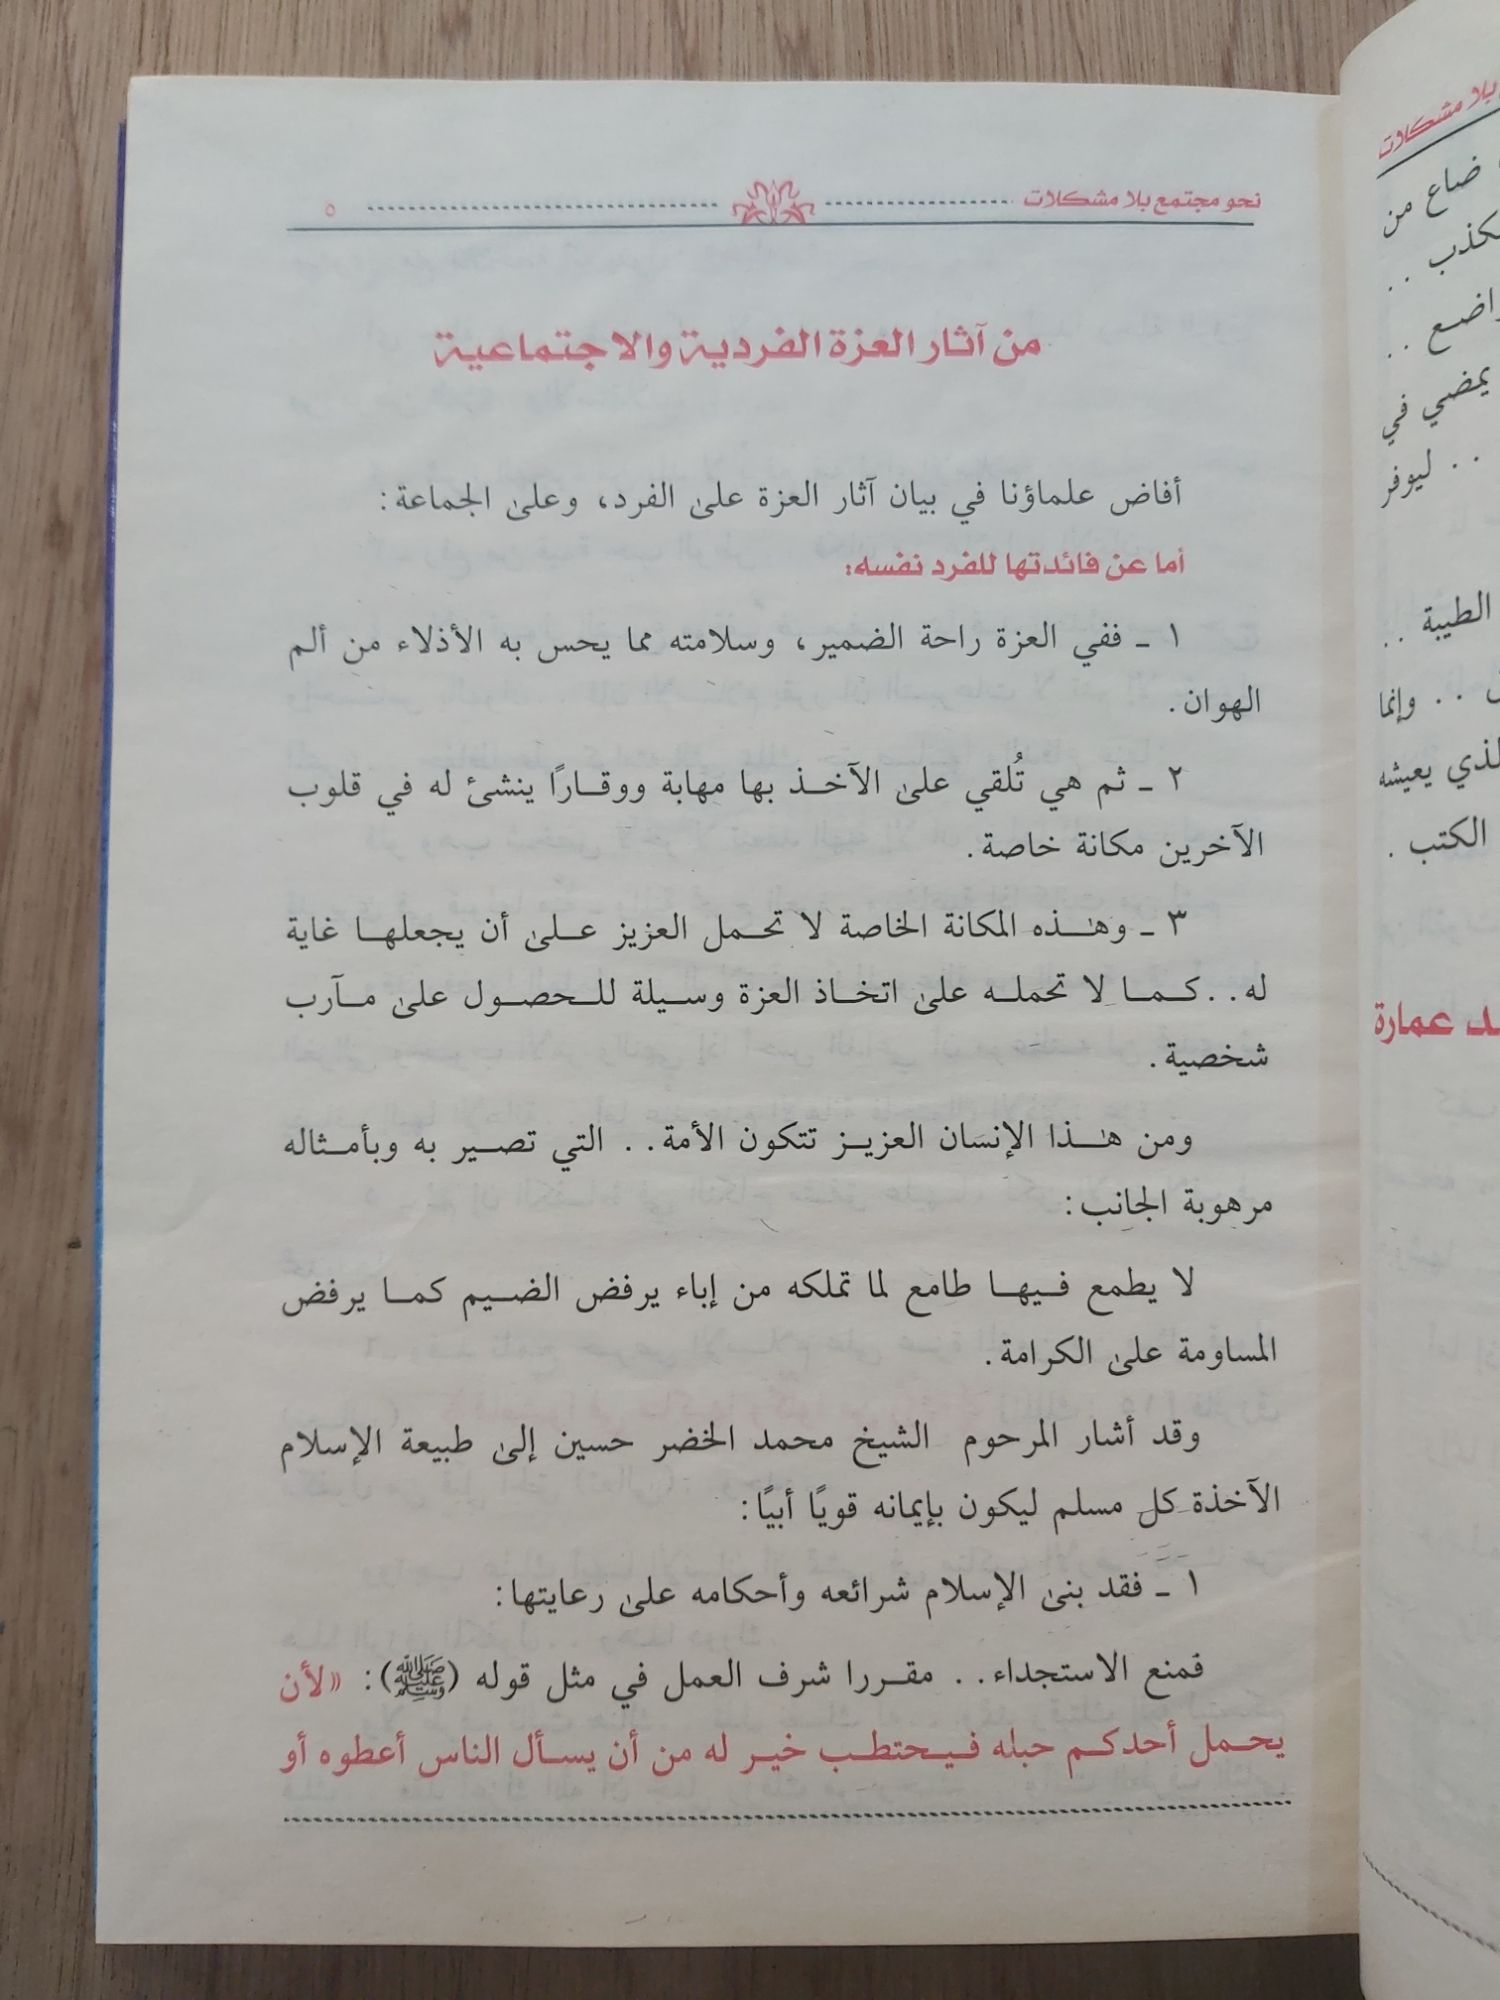 نحو مجتمع بلا مشكلات ٥
من آثار العزة الفردية والاجتماعية
أفاض علماؤنا في بيان آثار العزة علىٰ الفرد، وعلىٰ الجماعة:
أما عن فائدتها للفرد نفسه:
١ ـ ففي العزة راحة الضمير، وسلامته مما يحس به الأذلاء من ألم
الهوان.
٢ ـ ثم هي تُلقي علىٰ الآخذ بها مهابة ووقارًا ينشئ له في قلوب
الآخرين مكانة خاصة.
٣ ـ وهٰذه المكانة الخاصة لا تحمل العزيز علىٰ أن يجعلها غاية
له.. كما لا تحمله علىٰ اتخاذ العزة وسيلة للحصول علىٰ مآرب
شخصية.
ومن هٰذا الإنسان العزيز تتكون الأمة.. التي تصير به وبأمثاله
مرهوبة الجانب:
لا يطمع فيها طامع لما تملكه من إباء يرفض الضيم كما يرفض
المساومة علىٰ الكرامة.
وقد أشار المرحوم الشيخ محمد الخضر حسين إلىٰ طبيعة الإسلام
الآخذة كل مسلم ليكون بإيمانه قويًا أبيًا:
١ ـ فقد بنىٰ الإسلام شرائعه وأحكامه علىٰ رعايتها:
فمنع الاستجداء.. مقررا شرف العمل في مثل قوله (ﷺ): «لأن
يحمل أحدكم حبله فيحتطب خير له من أن يسأل الناس أعطوه أو
بلا مشكلات
ضاع من
. .
. .
يمضي في
. . ليوفر
الطيبة . .
. . وإنما
يعيشه
الكتب .
عمارة